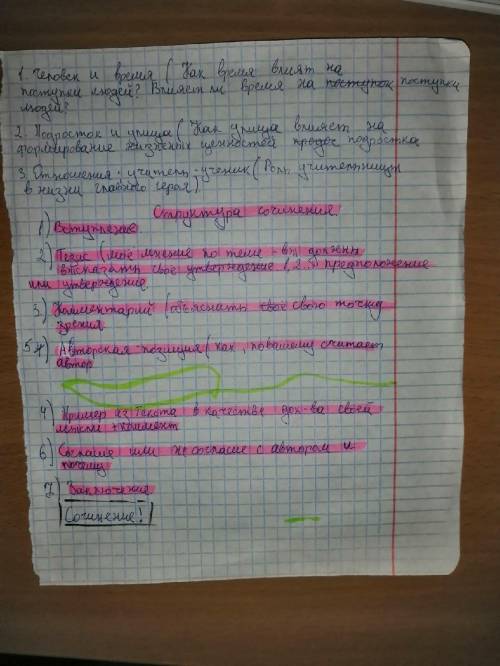 1. Человек и время ( Как время влият на
поступки людей? Влияет ли время на поступок поступки
людей?
2. Подросток и улица ( Как улица влияет на
формирование жизненых ценностей подростка
3. Отношения: учитель-ученик ( Роль учительницы
в жизни главного героя)
Структура сочинения.
1) Вступление
2) Тезис (моё мнение по теме - вы должны
высказать своё утверждение 1,2,3) предположение
или утверждение.
3) Комментарий (объяснять своё свою точку
зрения
5 4) Авторская позиция ( как, повашему считает
автор
4) Пример из текста в качестве док-ва своей
мысли + коммент
6) Согласие или не согласие с автором и
почему
7) Заключения
Сочинение!